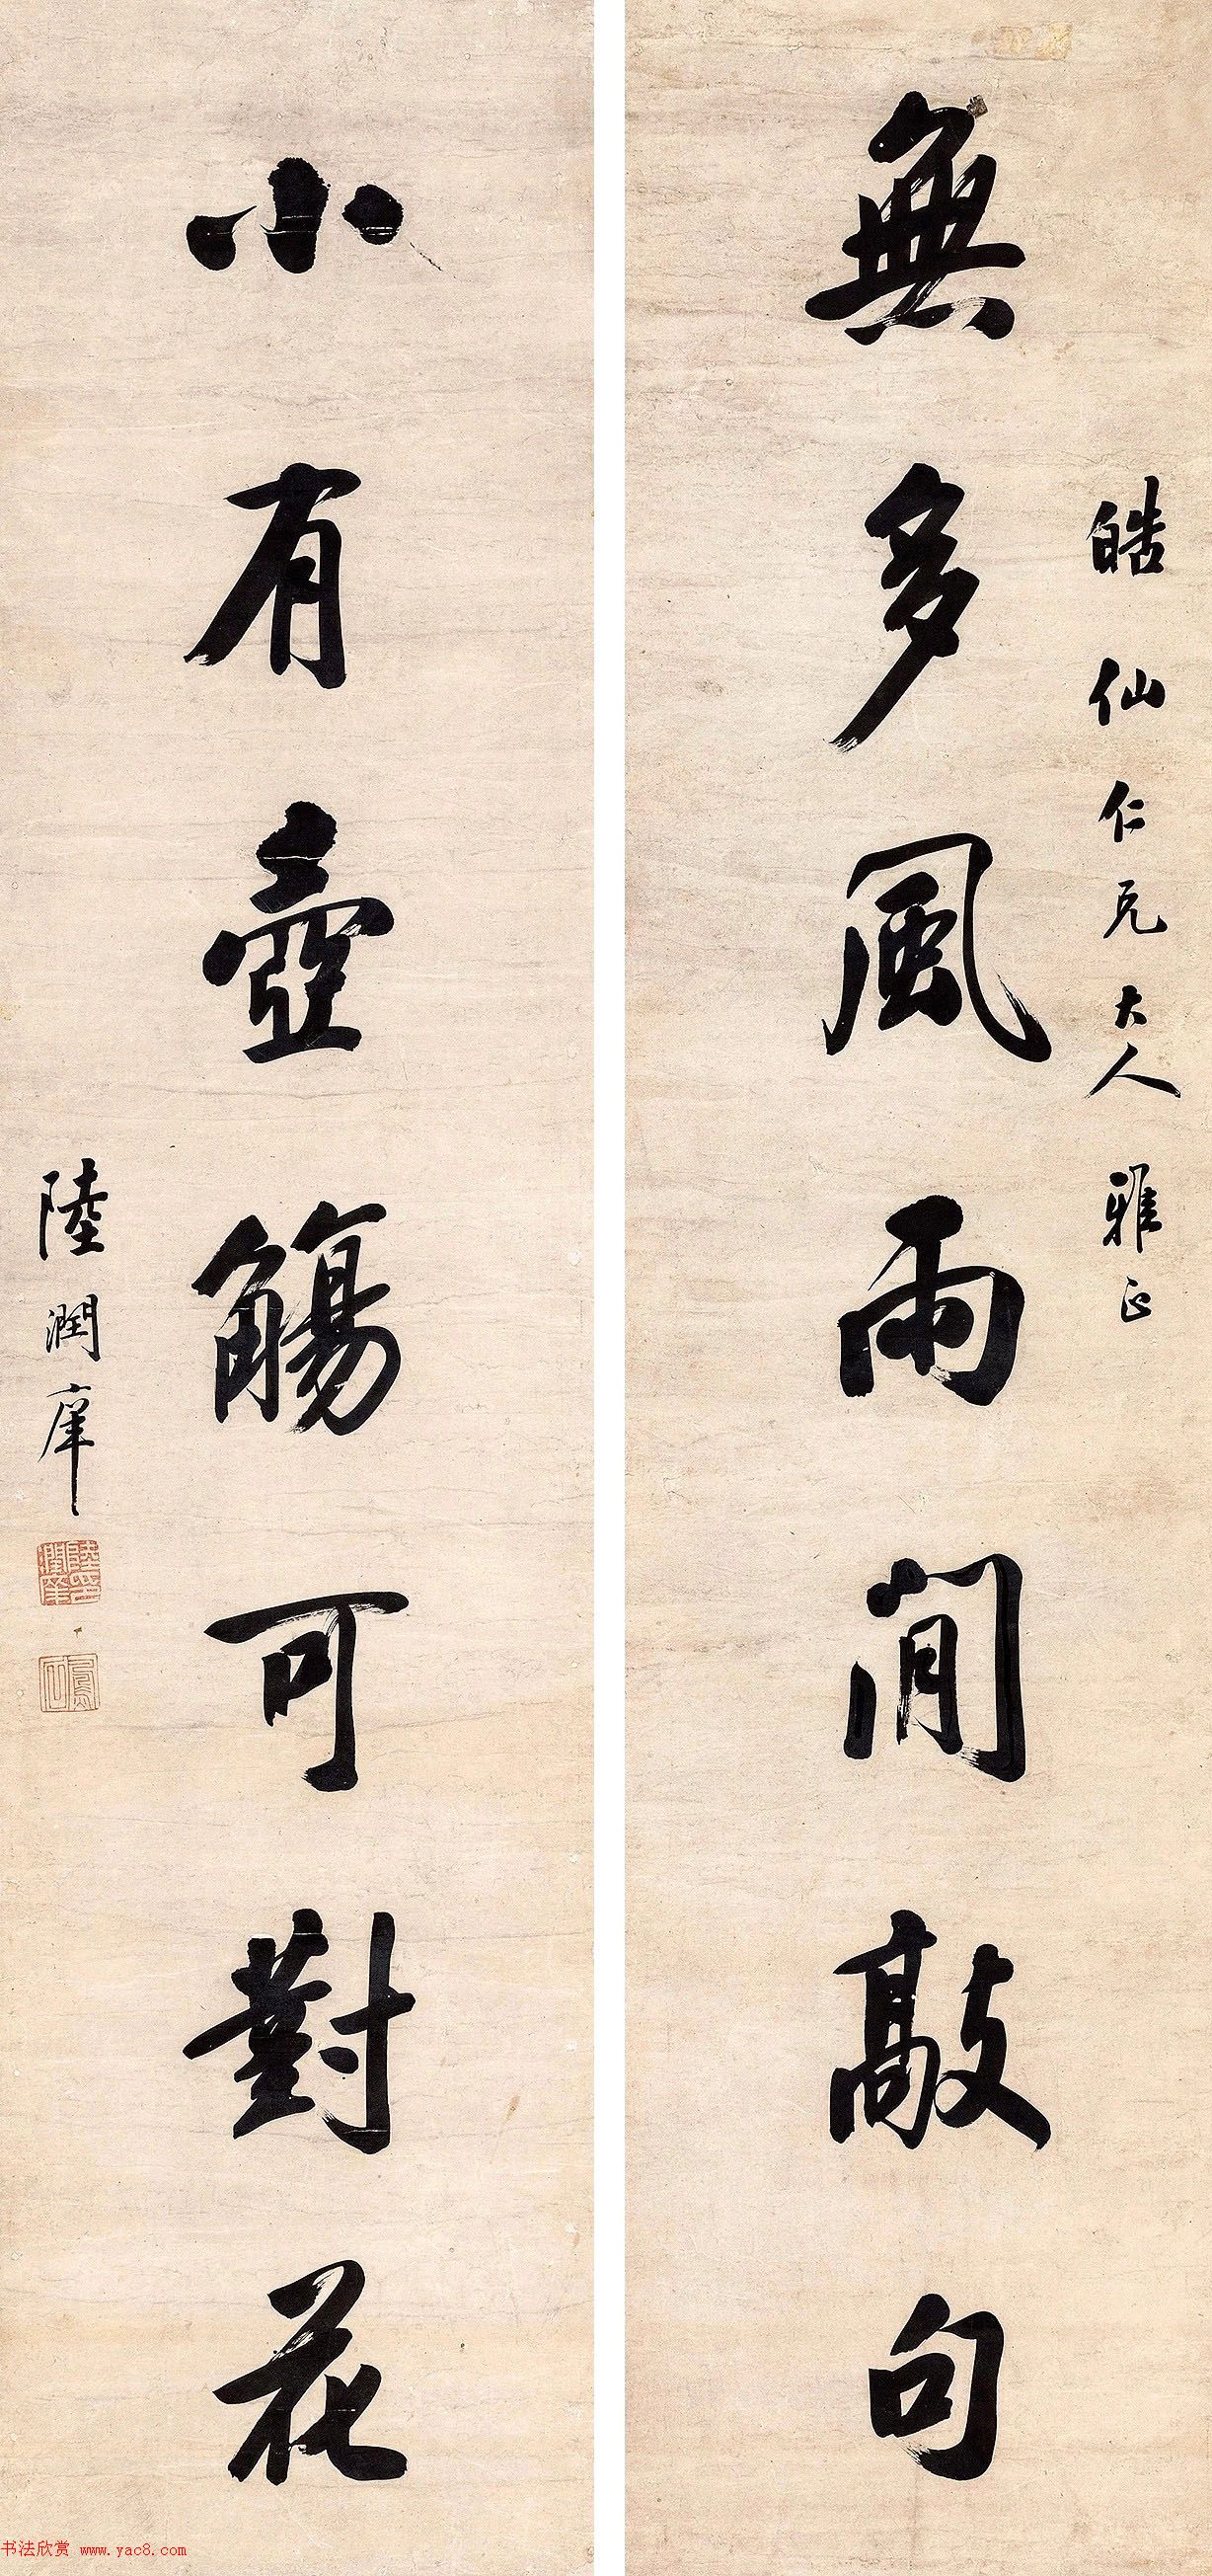 皓仙仁兄大人雅正
無多風雨閒敲句
小有壺觴可對花
陸潤庠
陸潤庠印
鳳石
书法欣赏 www.yac8.com